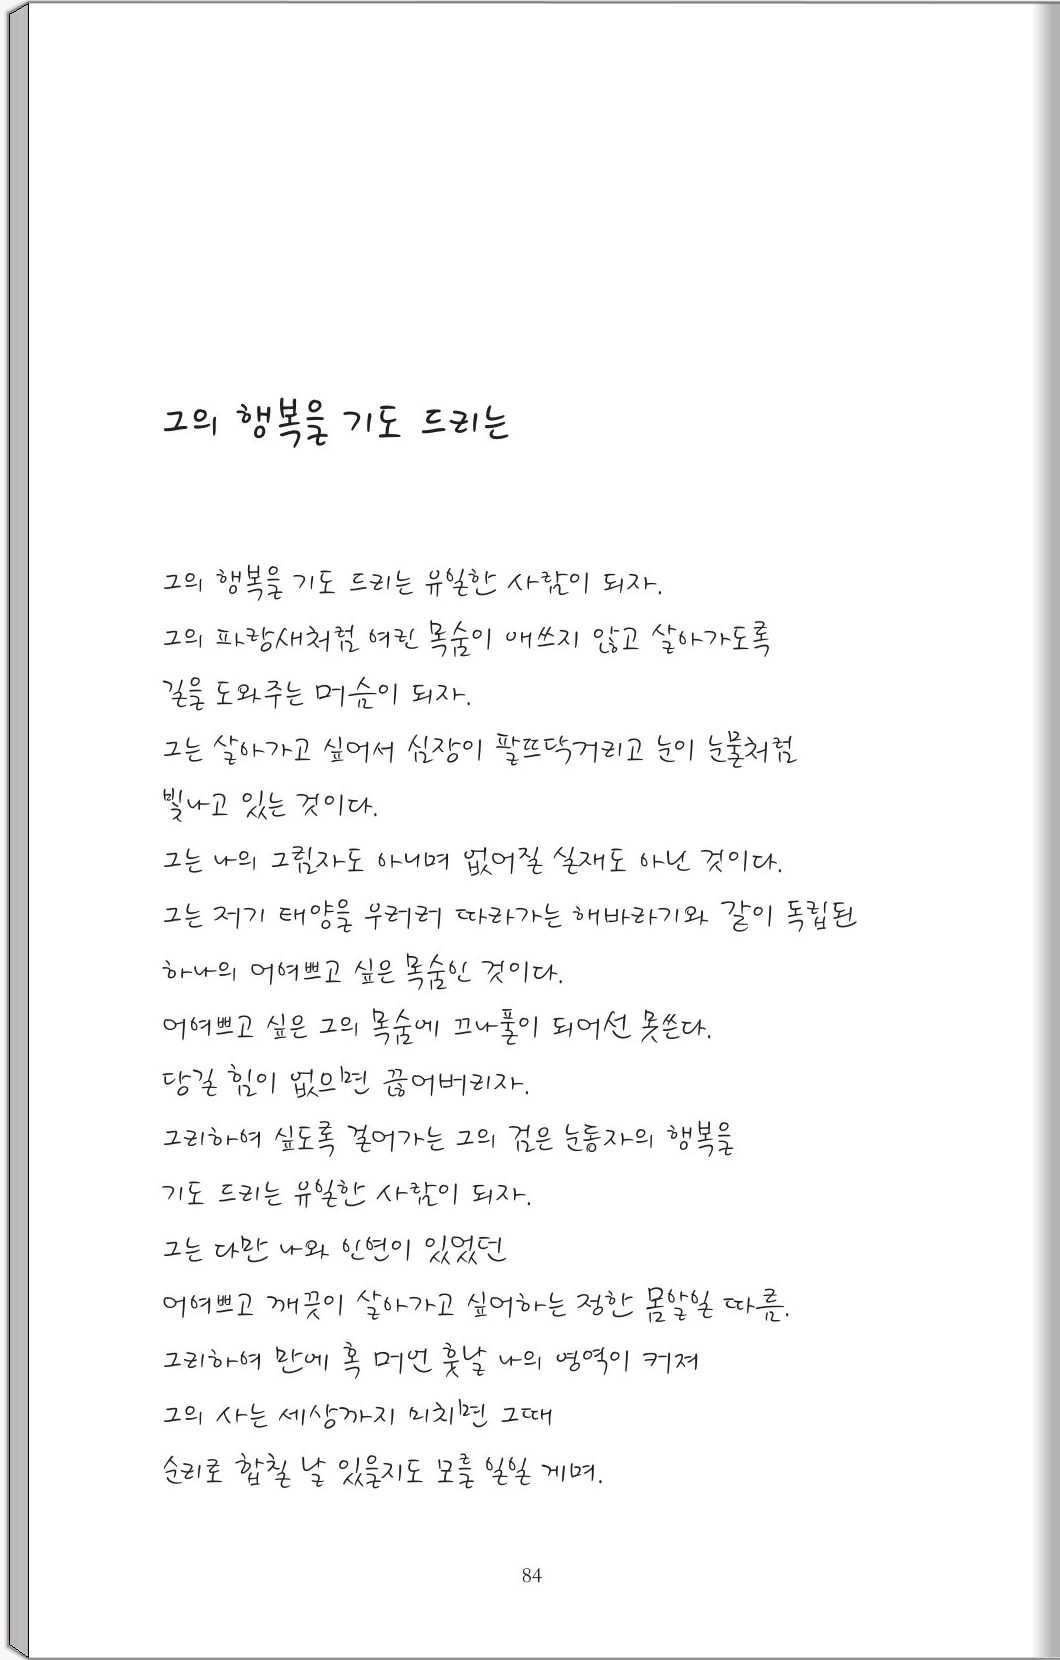 그의 행복을 기도 드리는
그의 행복을 기도 드리는 유일한 사람이 되자.
그의 파랑새처럼 여린 목숨이 애쓰지 않고 살아가도록
길을 도와주는 머슴이 되자.
그는 살아가고 싶어서 심장이 팔뜨닥거리고 눈이 눈물처럼
빛나고 있는 것이다.
그는 나의 그림자도 아니며 없어질 실재도 아닌 것이다.
그는 저기 태양을 우러러 따라가는 해바라기와 같이 독립된
하나의 어여쁘고 싶은 목숨인 것이다.
어여쁘고 싶은 그의 목숨에 끄나풀이 되어선 못쓴다.
당길 힘이 없으면 끊어버리자.
그리하여 싶도록 걸어가는 그의 검은 눈동자의 행복을
기도 드리는 유일한 사람이 되자.
그는 다만 나와 인연이 있었던
어여쁘고 깨끗이 살아가고 싶어하는 정한 몸알일 따름.
그리하여 만에 혹 머언 훗날 나의 영역이 커져
그의 사는 세상까지 미치면 그때
순리로 합칠 날 있을지도 모를 일일 게며.
84